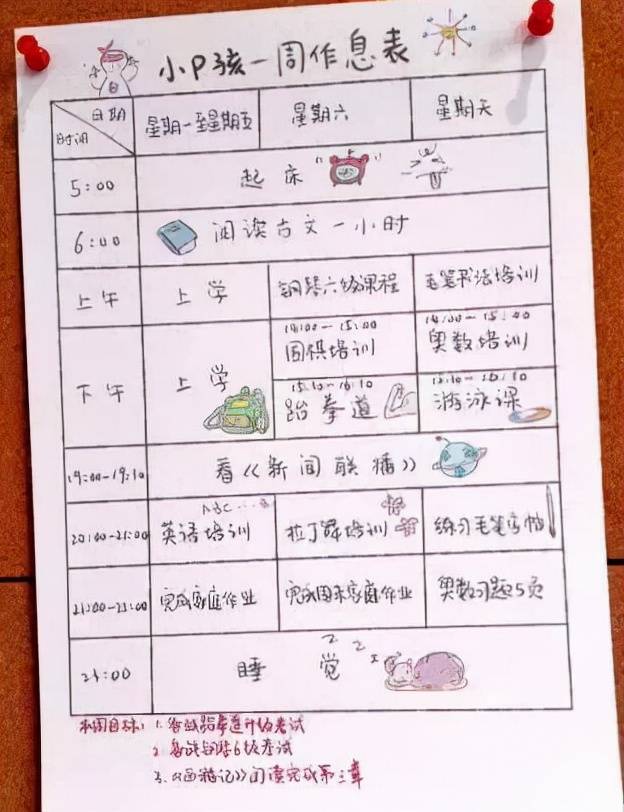 小P孩一周作息表
日期
时间
星期一至星期五
星期六
星期天
5:00
起床
6:00
阅读古文一小时
上午
上学
钢琴六级课程
毛笔书法培训
下午
上学
14:00-15:00
围棋培训
14:00-15:00
奥数培训
15:10-16:10
跆拳道
15:10-16:10
游泳课
19:00-19:10
看《新闻联播》
20:00-21:00
ABC...
英语培训
拉丁舞培训
练习毛笔字帖
21:00-23:00
完成家庭作业
完成周末家庭作业
奥数习题5页
睡觉
z z z
本周目标: 1. 备战跆拳道升级考试
2. 备战钢琴6级考试
3. 《西游记》阅读完成第三章